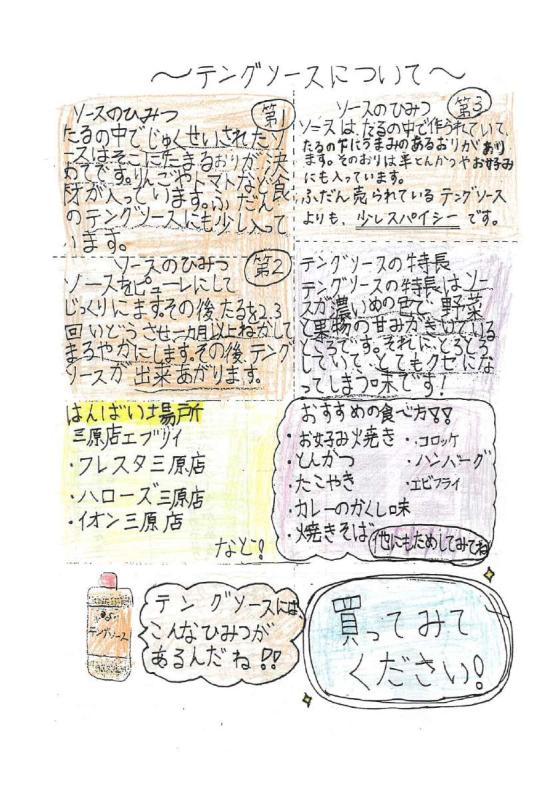 〜テングソースについて〜
ソースのひみつ 第1
たるの中でじゅくせいされたソ
ースはそこにたまるおりが決
めてです。りんごやトマトなど食
材が入っています。ふだん
のテングソースにも少し入って
います。
ソースのひみつ 第2
ソースをピューレにして
じっくりにます。その後、たるを2.3
回いどうさせ一カ月以上ねかして
まろやかにします。その後、テング
ソースが出来あがります。
ソースのひみつ 第3
ソースはたるの中で作られていて、
たるの下にうまみのあるおりがあり
ます。そのおりは半とんかつやお好み
にも入っています。
ふだん売られているテングソース
よりも、少しスパイシーです。
テングソースの特長
テングソースの特長はソー
スが濃いめの色で、野菜
と果物の甘みがきいている
ところです。それに、とろとろ
していて、とてもクセにな
ってしまう味です!
はんばい場所
三原店エブリイ
・フレスタ三原店
・ハローズ三原店
・イオン三原店
など!
おすすめの食べ方!!
・お好み焼き
・とんかつ
・たこやき
・カレーのかくし味
・焼きそば
・コロッケ
・ハンバーグ
・エビフライ
他にもためしてみてね
テングソース
テングソースには
こんなひみつが
あるんだね!!
買ってみて
ください!